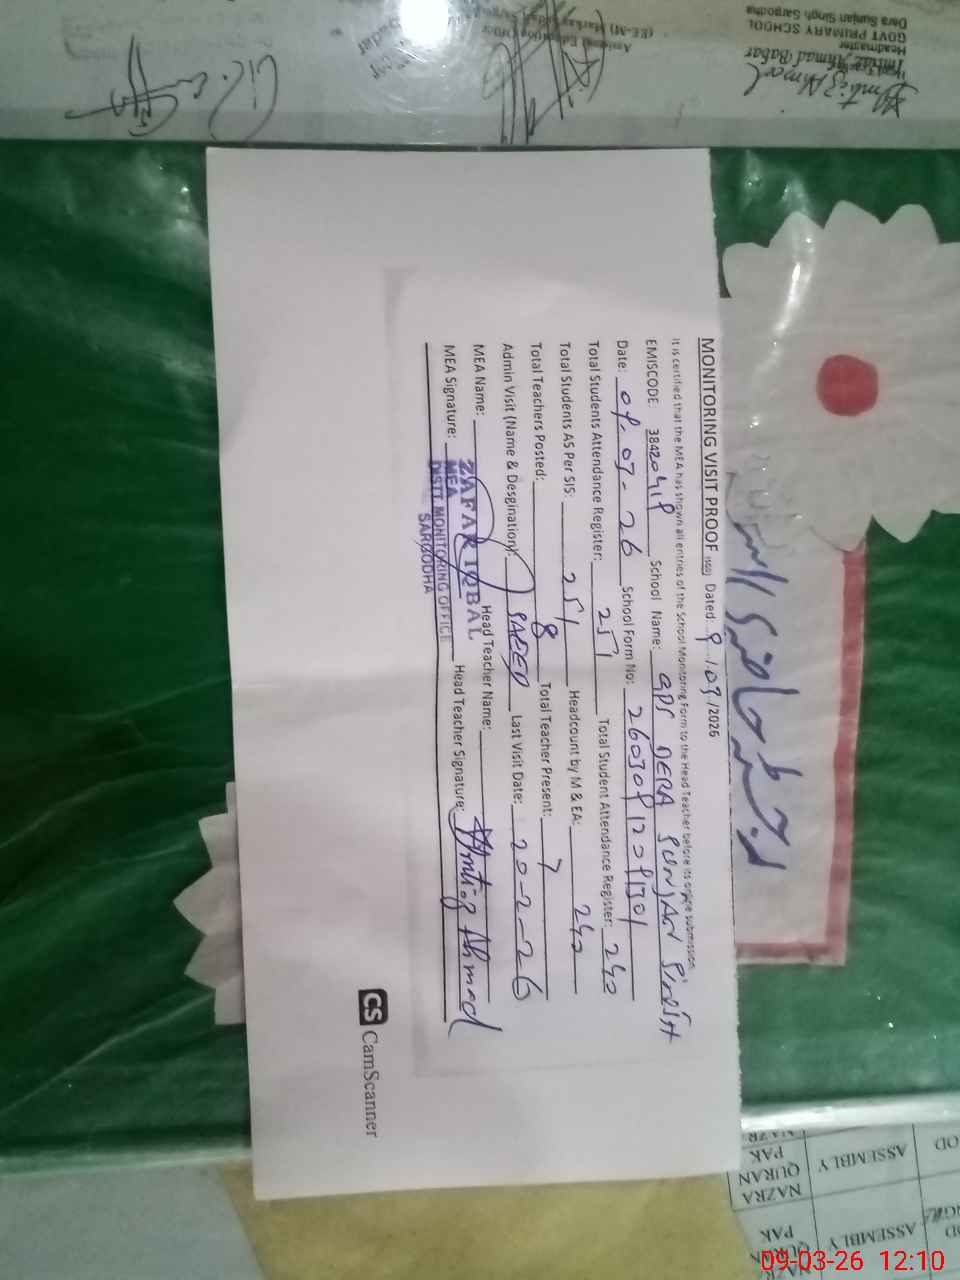 MONITORING VISIT PROOF (SED) Dated: 9/03/2026
It is certified that the MEA has shown all entries of the School Monitoring Form to the Head Teacher before its online submission
EMISCODE: 38420418 School Name: GPS DERA SUNJAN SINGH
Date: 09-03-26 School Form No:
Total Students Attendance Register: 251 Total Student Attendance Register: 240
Total Students AS Per SIS: 251 Headcount by M & EA: 240
Total Teachers Posted: 8 Total Teacher Present: 7
Admin Visit (Name & Desgination): SAEED Last Visit Date: 20-2-26
MEA Name: ZAFAR IQBAL Head Teacher Name:
MEA Signature: Head Teacher Signature: Imtiaz Ahmed
MEA
DISTT. MONITORING OFFICE
SARGODHA
CS CamScanner
Imtiaz Ahmad Babar
Headmaster
GOVT PRIMARY SCHOOL
Dera Sunjan Singh Sargodha
Assistant Education Officer
(EE-M) Markaz
رجسٹر حاضری
ASSEMBLY
NAZRA
QURAN
PAK
ASSEMBLY
NAZRA
QURAN
PAK
09-03-26 12:10